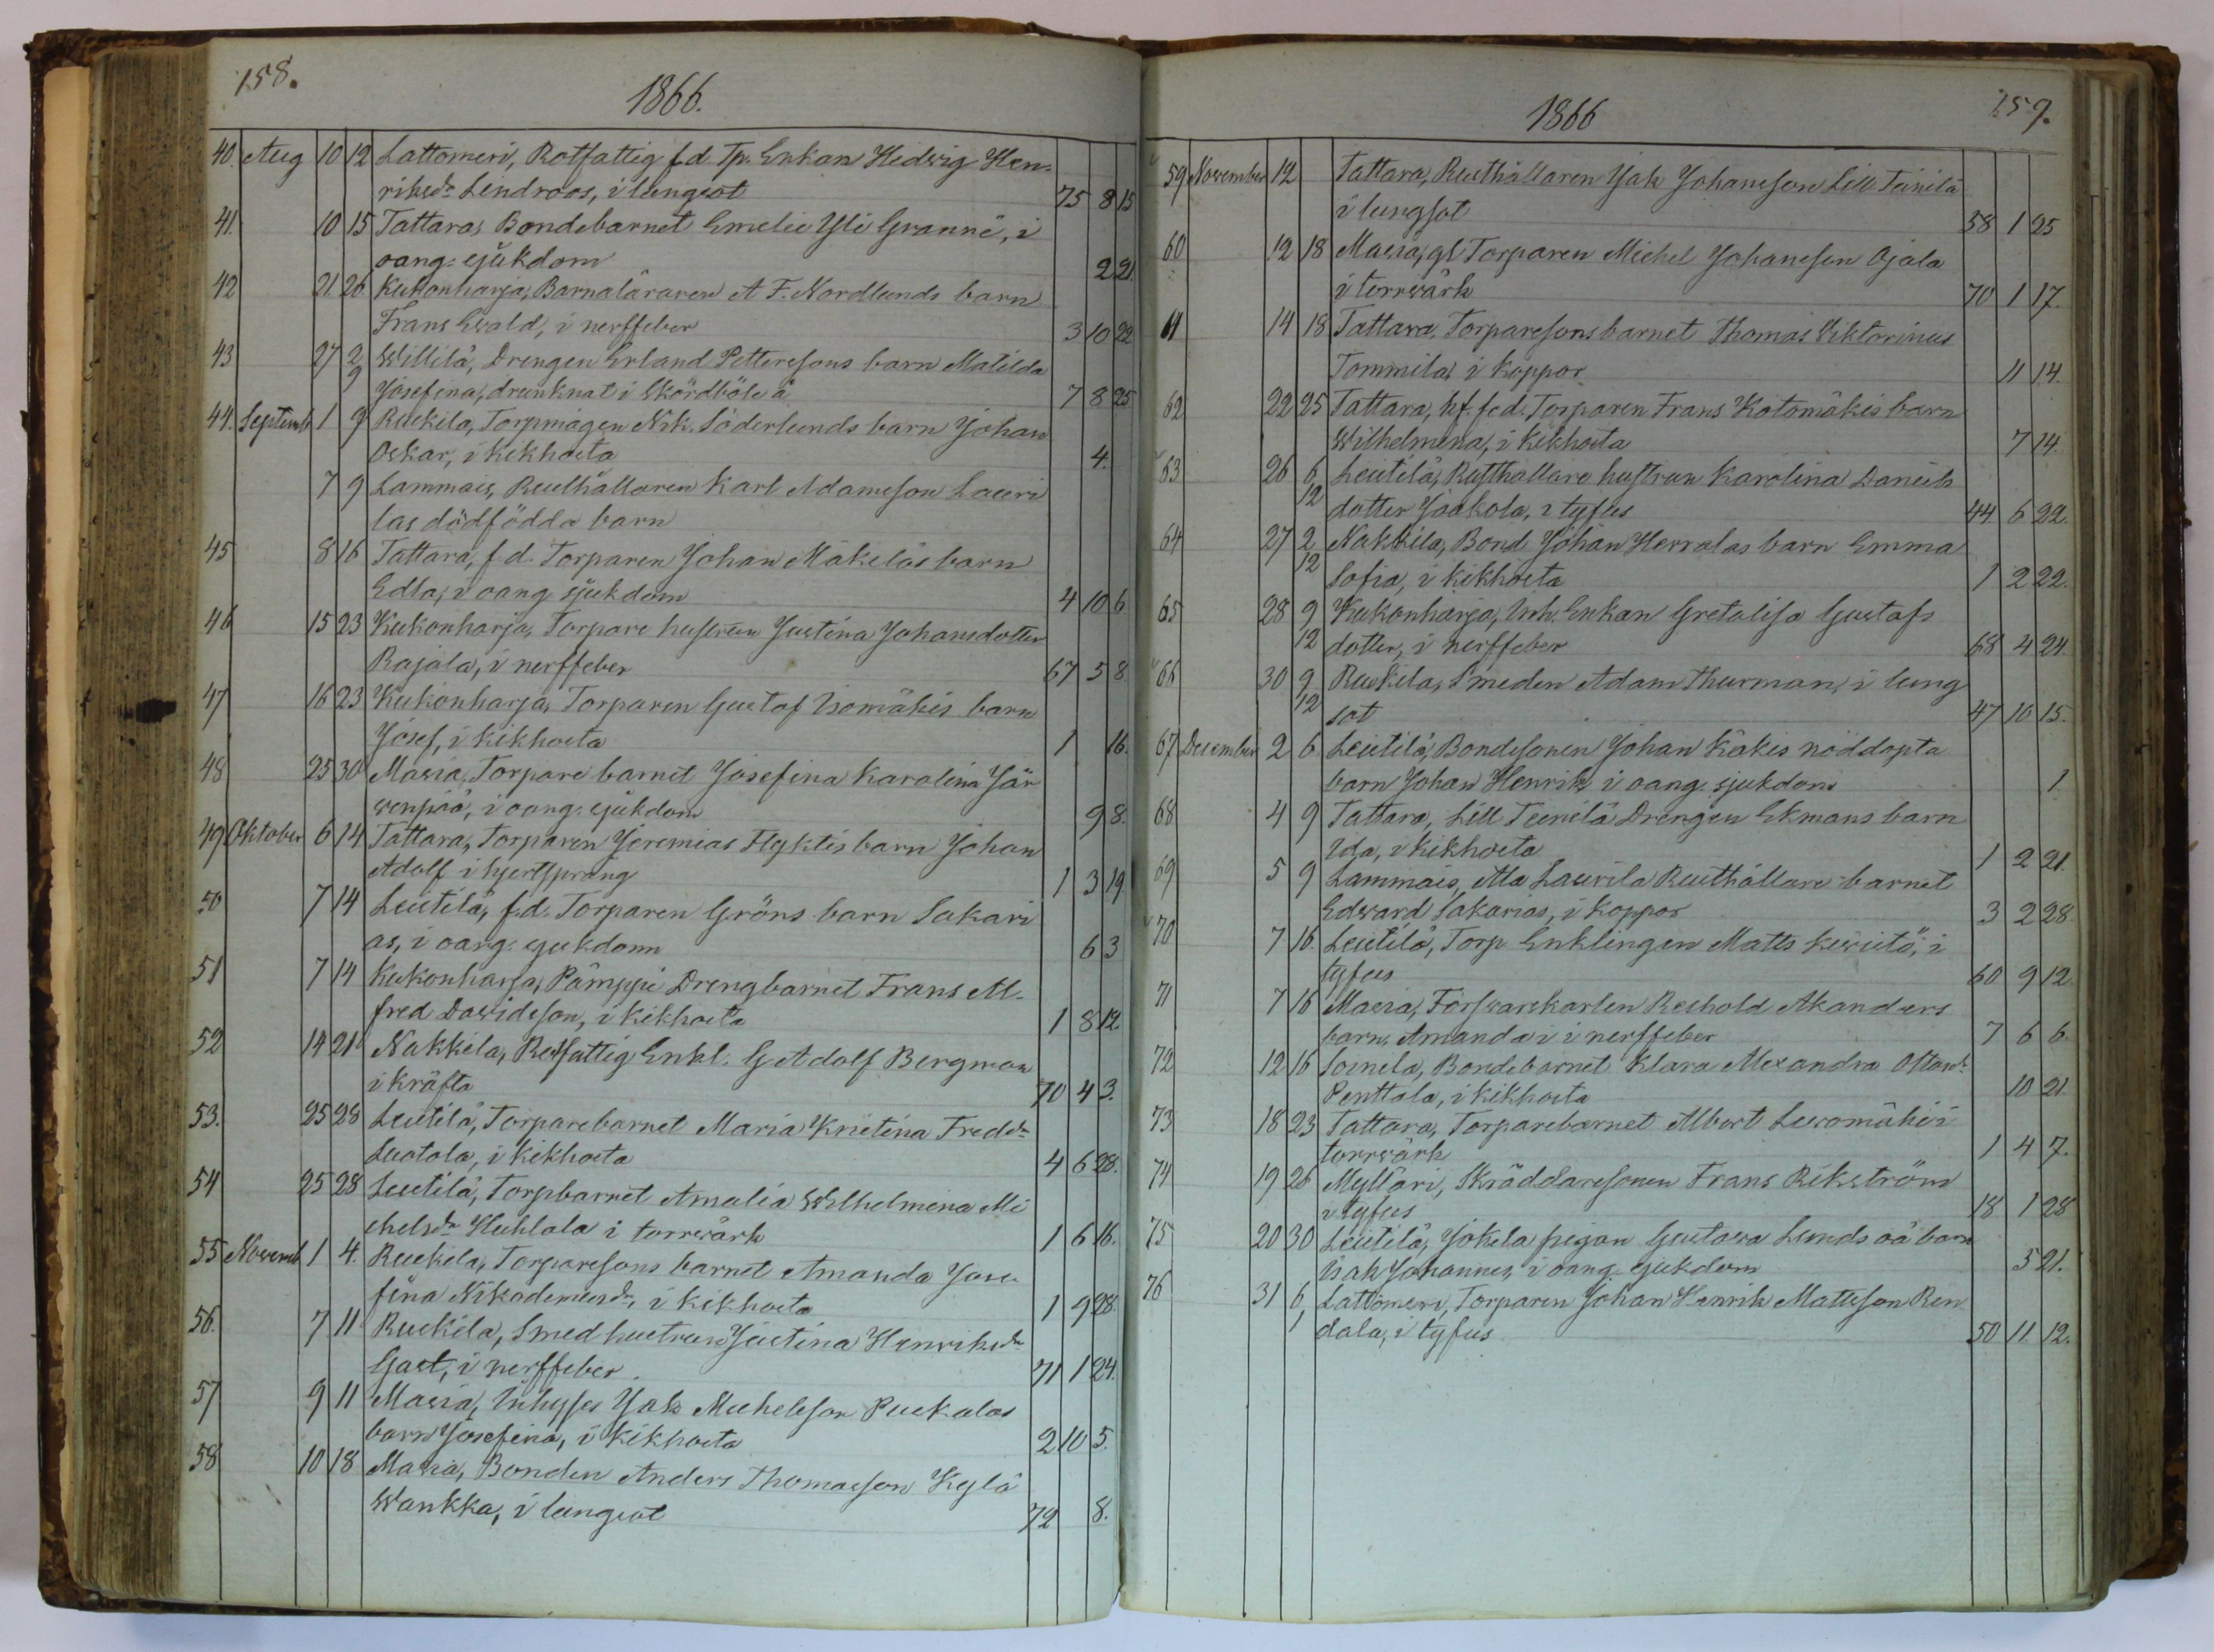 158.
1866.
40. Aug 10 12 Lattomeri, Rotfattig f.d. Tp. Enkan Hedvig Hen-
riksdr Lindroos, i lungsot 75 8 15
41. 10 15 Tattara, Bondebarnet Emelie Yli Granni, i
oang. sjukdom 2 21.
42 21 26 Kukonharja, Barnaläraren A F. Nordlunds barn
Frans Ewald, i nerffeber 3 10 22
43 27 2/9 Willilä, Drengen Erland Pettersons barn Matilda
Josefina, drunknat i Skördböle å 7 8 25
44. Septemb 1 9 Ruskila, Torpmågen Nik. Söderlunds barn Johan
Oskar, i kikhosta 4.
7 9 Lammais, Rusthållaren Karl Adamsson Lauri
las dödfödda barn
45 8 16 Tattara, f.d. Torparen Johan Mäkiläs barn
Edla, i oang. sjukdom 4 10 6
46 15 23 Kukonharja, Torpare hustrun Justina Johansdotter
Rajala, i nerffeber 67 5 8
47 16 23 Kukonharja, Torparen Gustaf Isomäkis barn
Josef, i kikhosta 1 16.
48 25 30 Masia, Torpare barnet Josefina Karolina Jär
wenpää, i oang. sjukdom 9 8.
49 Oktober 6 14 Tattara, Torparen Jeremias Flyktis barn Johan
Adolf i hjertsprång 1 3 19
50 7 14 Leistilä, f.d. Torparen Gröns barn Sakari
as, i oang. sjukdom 6 3
51 7 14 Kukonharja, Pämppi Drengbarnet Frans Al-
fred Davidsson, i kikhosta 1 8 12
52 14 21 Nakkila, Rotfattig Enkl. G Adolf Bergman
i kräfta 70 4 3.
53. 25 28 Leistilä, Torparebarnet Maria Kristina Fredrdr
Luotola, i kikhosta 4 6 28.
54 25 28 Leistilä, Torpbarnet Amalia Wilhelmina Mi
chelsdr Huhtala i torrvärk 1 6 16.
55 Novemb 1 4. Ruskila, Torparesons barnet Amanda Jose-
fina Nikodemusdr, i kikhosta 1 9 28.
56. 7 11 Ruskila, Smedhustrun Justina Henriksdr
Gast, i nerffeber 71 1 24.
57 9 11 Masia, Inhyses Isak Michelsson Puckalas
barn Josefina, i kikhosta 2 10 5.
58 10 18 Masia, Bonden Anders Thomasson Kylä
Wankka, i lungsot 72 8.
1866
159.
59 November 12 Tattara, Rusthållaren Isak Johansson Lill Tainilä
i lungsot 58 1 25
60 12 18 Masia, gl. Torparen Michel Johansson Ojala
i torrvärk 70 1 17.
61 14 18 Tattara, Torparesonsbarnet Thomas Viktorinus
Tommila, i koppor 11 14.
62 22 25 Tattara, hf. f.d. Torparen Frans Kotomäkis barn
Wilhelmina, i kikhosta 7 14.
63 26 6/12 Leistilä, Rusthållare hustrun Karolina Daniels
dotter Jaakola, i tyfus 44 6 22.
64 27 2/12 Nakkila, Bond. Johan Herralas barn Emma
Sofia, i kikhosta 1 2 22.
65 28 9/12 Kukonharja, Inh. Enkan Gretalisa Gustafs
dotter, i nerffeber 68 4 24.
66 30 9/12 Ruskila, Smeden Adam Thurman, i lung
sot 47 10 15.
67 December 2 6 Leistilä, Bondesonen Johan Käkis nöddöpta
barn Johan Henrik i oang. sjukdom 1.
68 4 9 Tattara, Lill Teinilä Drengen Ekmans barn
Ida, i kikhosta 1 2 21.
69 5 9 Lammais, Ala Laurila Rusthållare barnet
Edvard Sakarias, i koppor 3 2 28.
70 7 16. Leistilä, Torp Enklingen Matts Kivistö, i
tyfus 60 9 12.
71 7 16 Masia, Försvarskarlen Reihold Akanders
barn, Amanda i nerffeber 7 6 6.
72 12 16 Soinila, Bondebarnet Klara Alexandra
Penttala, i kikhosta 10 21.
73 18 23 Tattara, Torparebarnet Albert Luoomäki i
torrvärk 1 4 7.
74 19 26 Mylläri, Skräddaresonen Frans Rikström
i tyfus 18 1 28
75 20 30 Leistilä, Jokela pigan Gustava Lunds oä barn
Isak Johannes, i oang. sjukdom 5 21.
76 31 6/1 Lattomeri, Torparen Johan Henrik Mattsson Ren
dala, i tyfus 50 11 12.